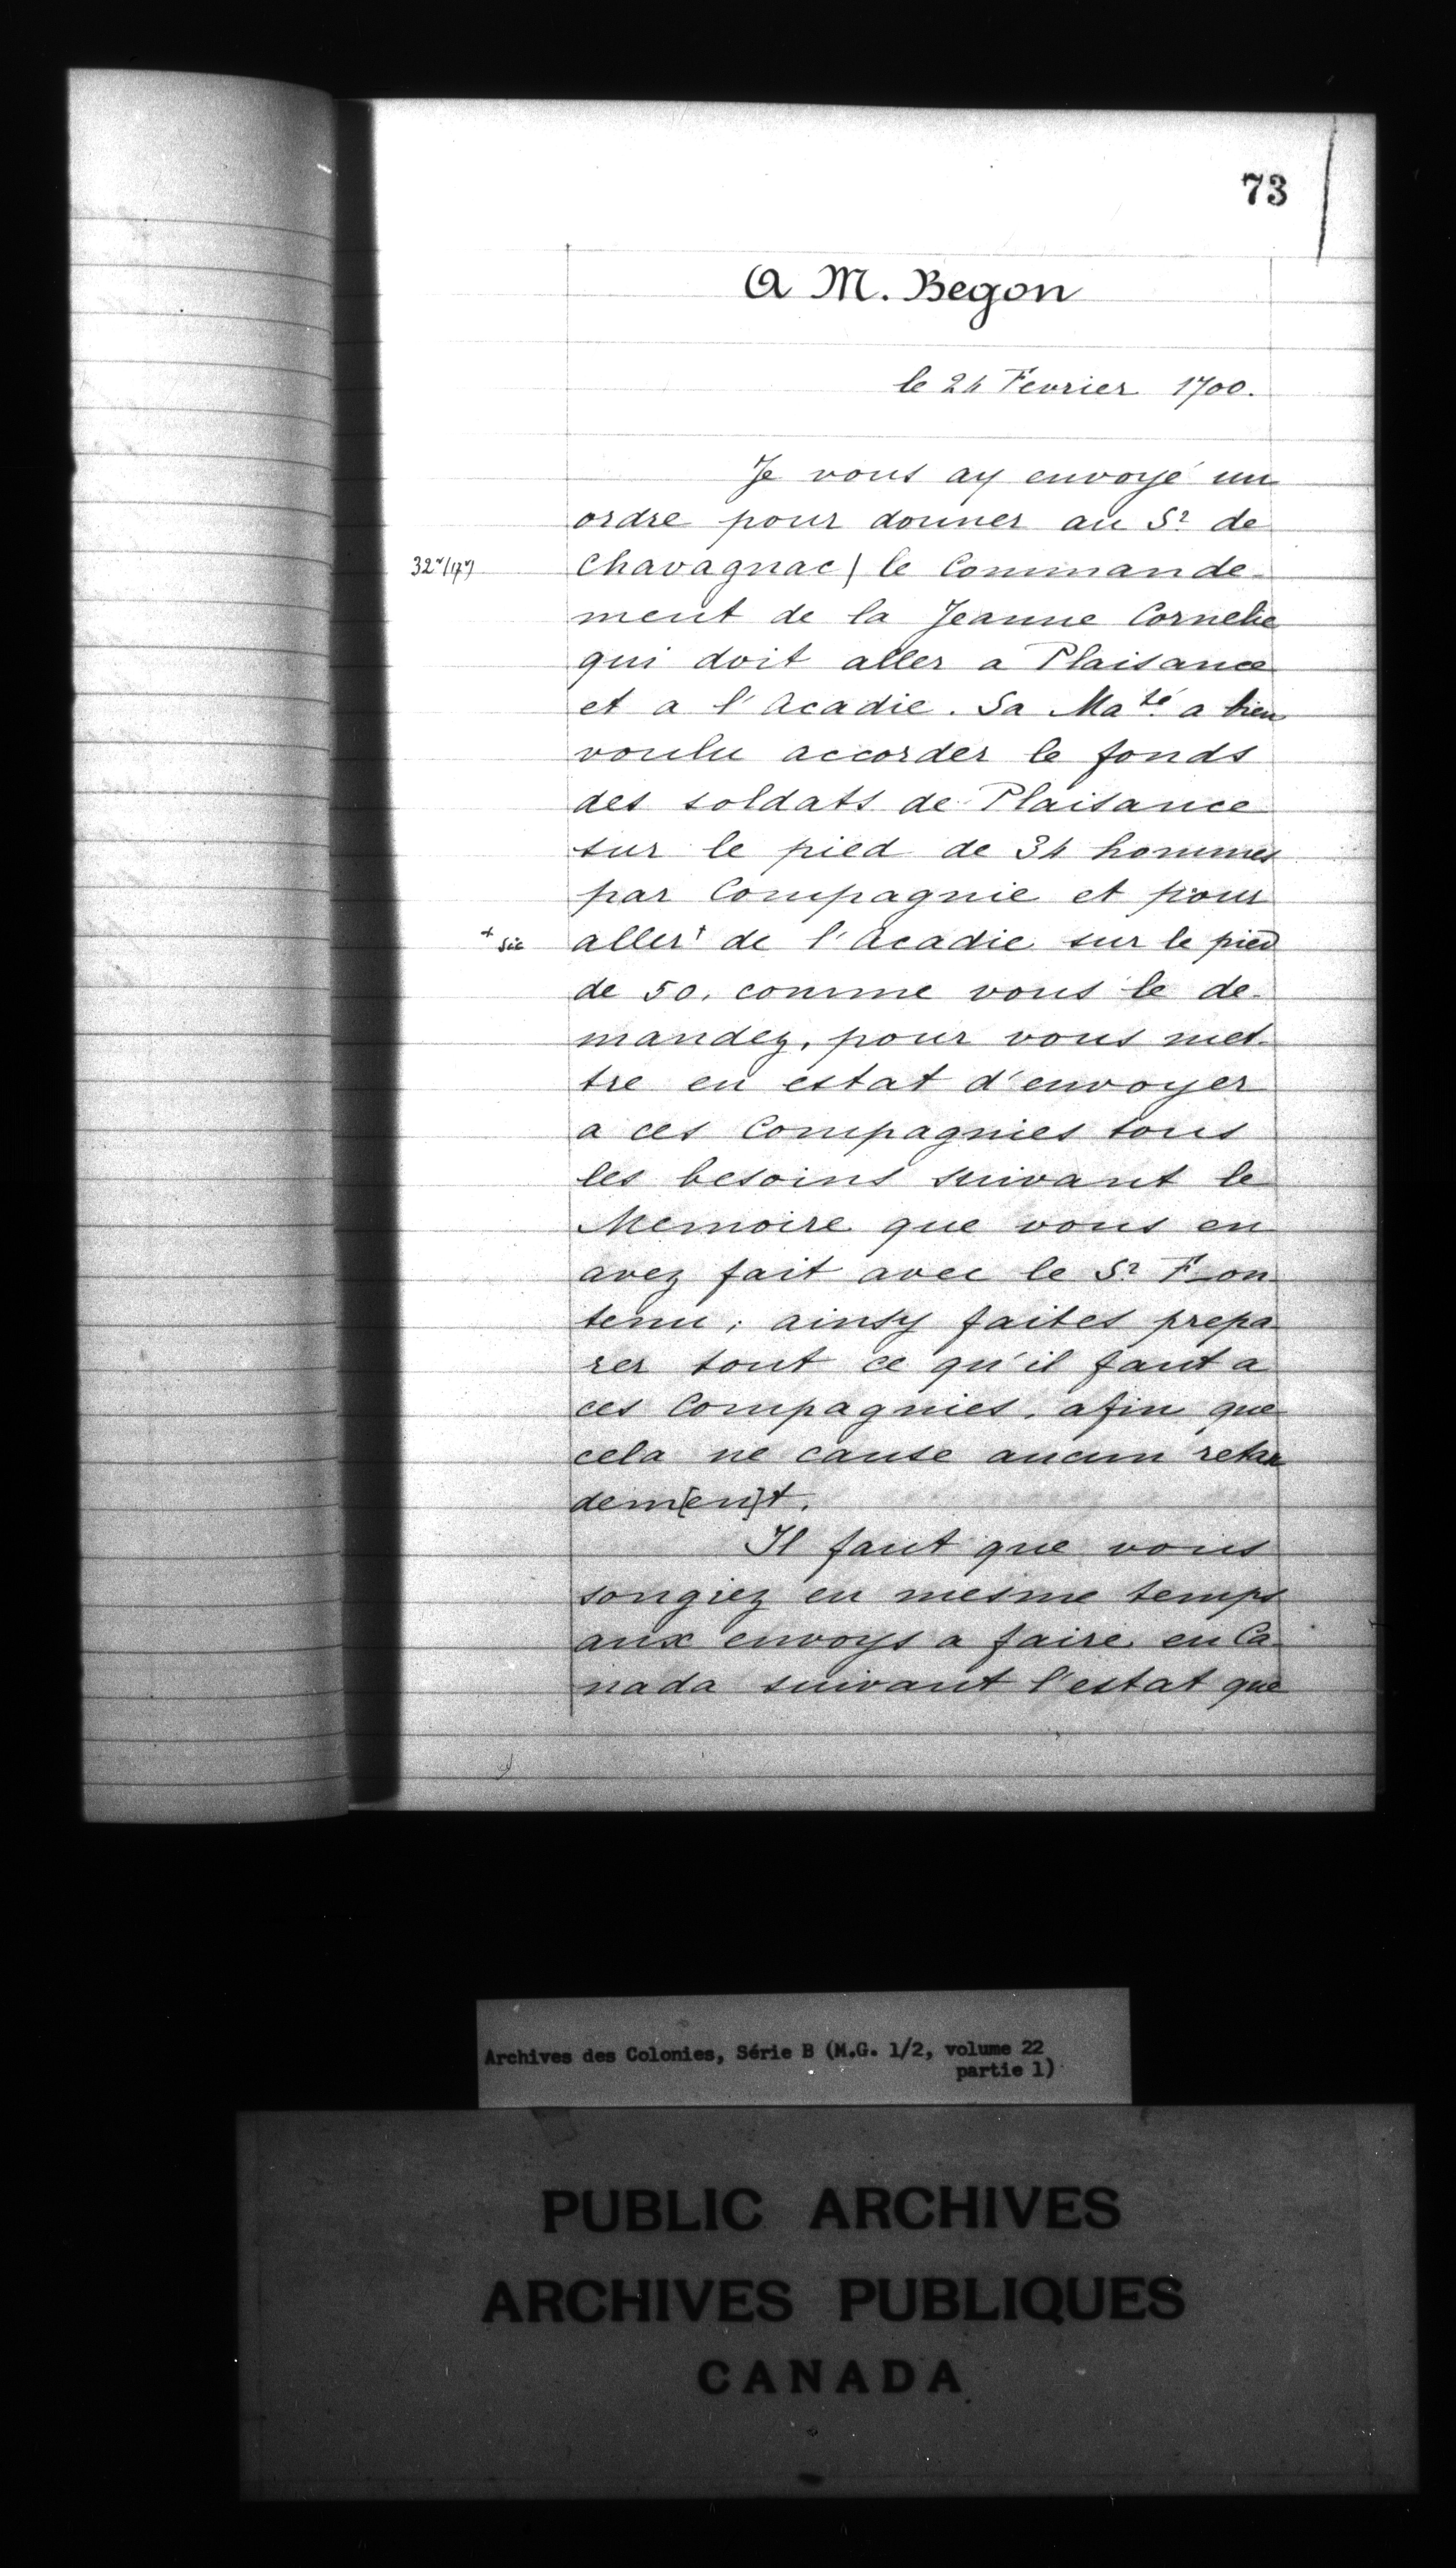 73
A M. Begon
le 24 Fevrier 1700.
Je vous ay envoyé un
ordre pour donner au Sr de
Chavagnac | le Commande-
ment de la Jeanne Cornelie
qui doit aller a Plaisance
et a l'Acadie. Sa Maté a bien
voulu accorder le fonds
des soldats de Plaisance
sur le pied de 34 hommes
par Compagnie et pour
+ sic
aller+ de l'Acadie sur le pied
de 50. comme vous le de-
mandez, pour vous met-
tre en estat d'envoyer
a ces Compagnies tous
les besoins suivant le
Memoire que vous en
avez fait avec le Sr Fon
tenu; ainsy faites prepa
rer tout ce qu'il faut a
ces Compagnies, afin que
cela ne cause aucun retar
dem[en]t.
Il faut que vous
songiez en mesme temps
aux envoys a faire en Ca
nada suivant l'estat que
Archives des Colonies, Série B (M.G. 1/2, volume 22
partie 1)
PUBLIC ARCHIVES
ARCHIVES PUBLIQUES
CANADA